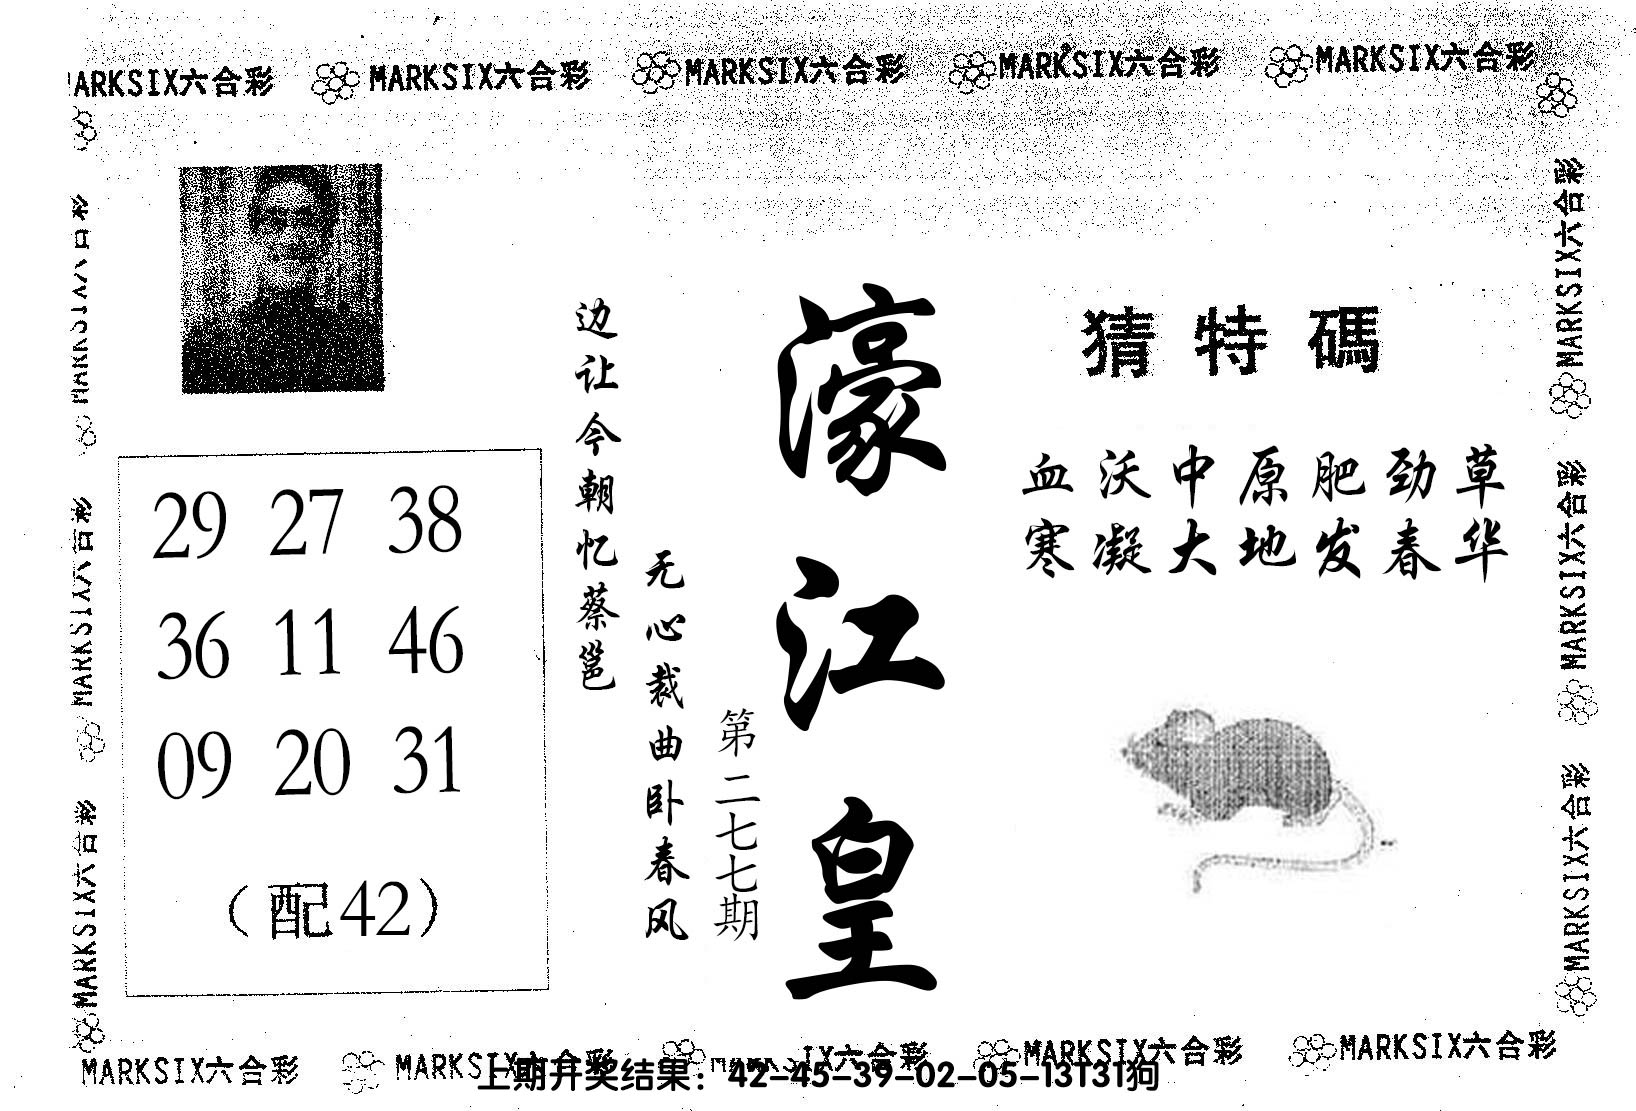 MARKSIX六合彩 MARKSIX六合彩 MARKSIX六合彩 MARKSIX六合彩
猜特碼
血沃中原肥劲草
寒凝大地发春华
濠江皇
第二七七期
无心裁曲卧春风
边让今朝忆蔡邕
29 27 38
36 11 46
09 20 31
（配42）
MARKSIX六合彩
MARKSIX六合彩
MARKSIX六合彩
MARKSIX六合彩
MARKSIX六合彩
MARKSIX六合彩 MARKSIX六合彩 MARKSIX六合彩 MARKSIX六合彩
上期开奖结果：42-45-39-02-05-13T31狗